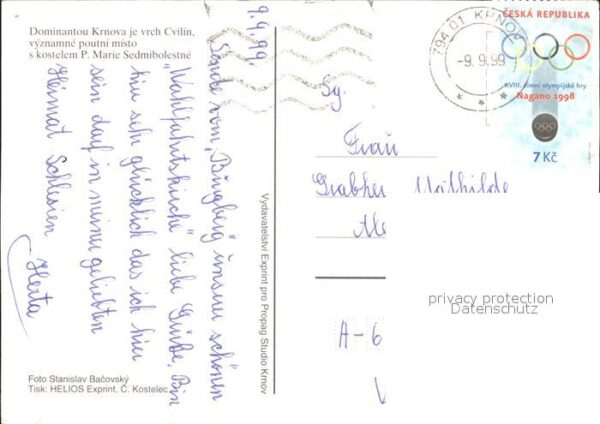 Dominantou Krnova je vrch Cvilín,
významné poutní místo
s kostelem P. Marie Sedmibolestné
9.9.99
Sende vom „Burgberg" unserer schönen
„Wahlfahrtskirche" liebe Grüße. Bin
hier sehr glücklich das ich hier
sein darf in meiner geliebten
Heimat Schlesien
Herta
Foto Stanislav Bačovský
Tisk: HELIOS Exprint, Č. Kostelec
Vydavatelství Exprint pro Propag Studio Krnov
794 01 KRNOV
-9.9.99
ČESKÁ REPUBLIKA
XVIII. zimní olympijské hry
Nagano 1998
7 Kč
Frau
Grabher Mathilde
A-6
privacy protection
Datenschutz